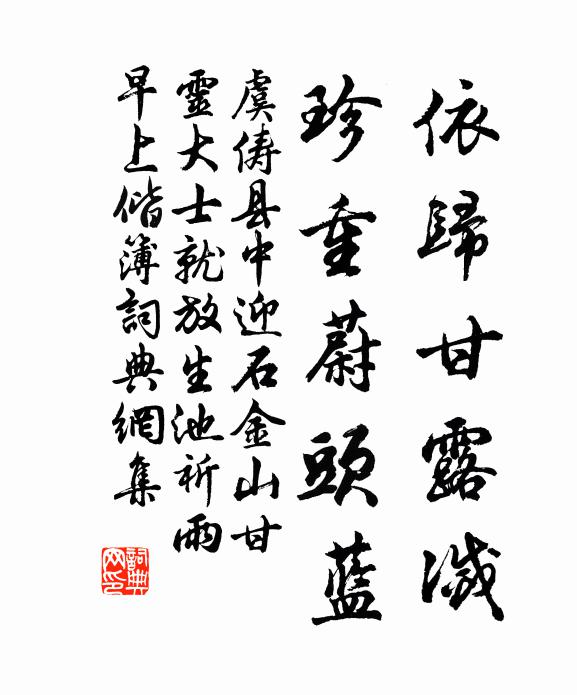 依歸甘露滅
珍重蔚頭藍
虞儔县中迎石金山甘
靈大士就放生池祈雨
早上偕簿詞典網集
詞典網印